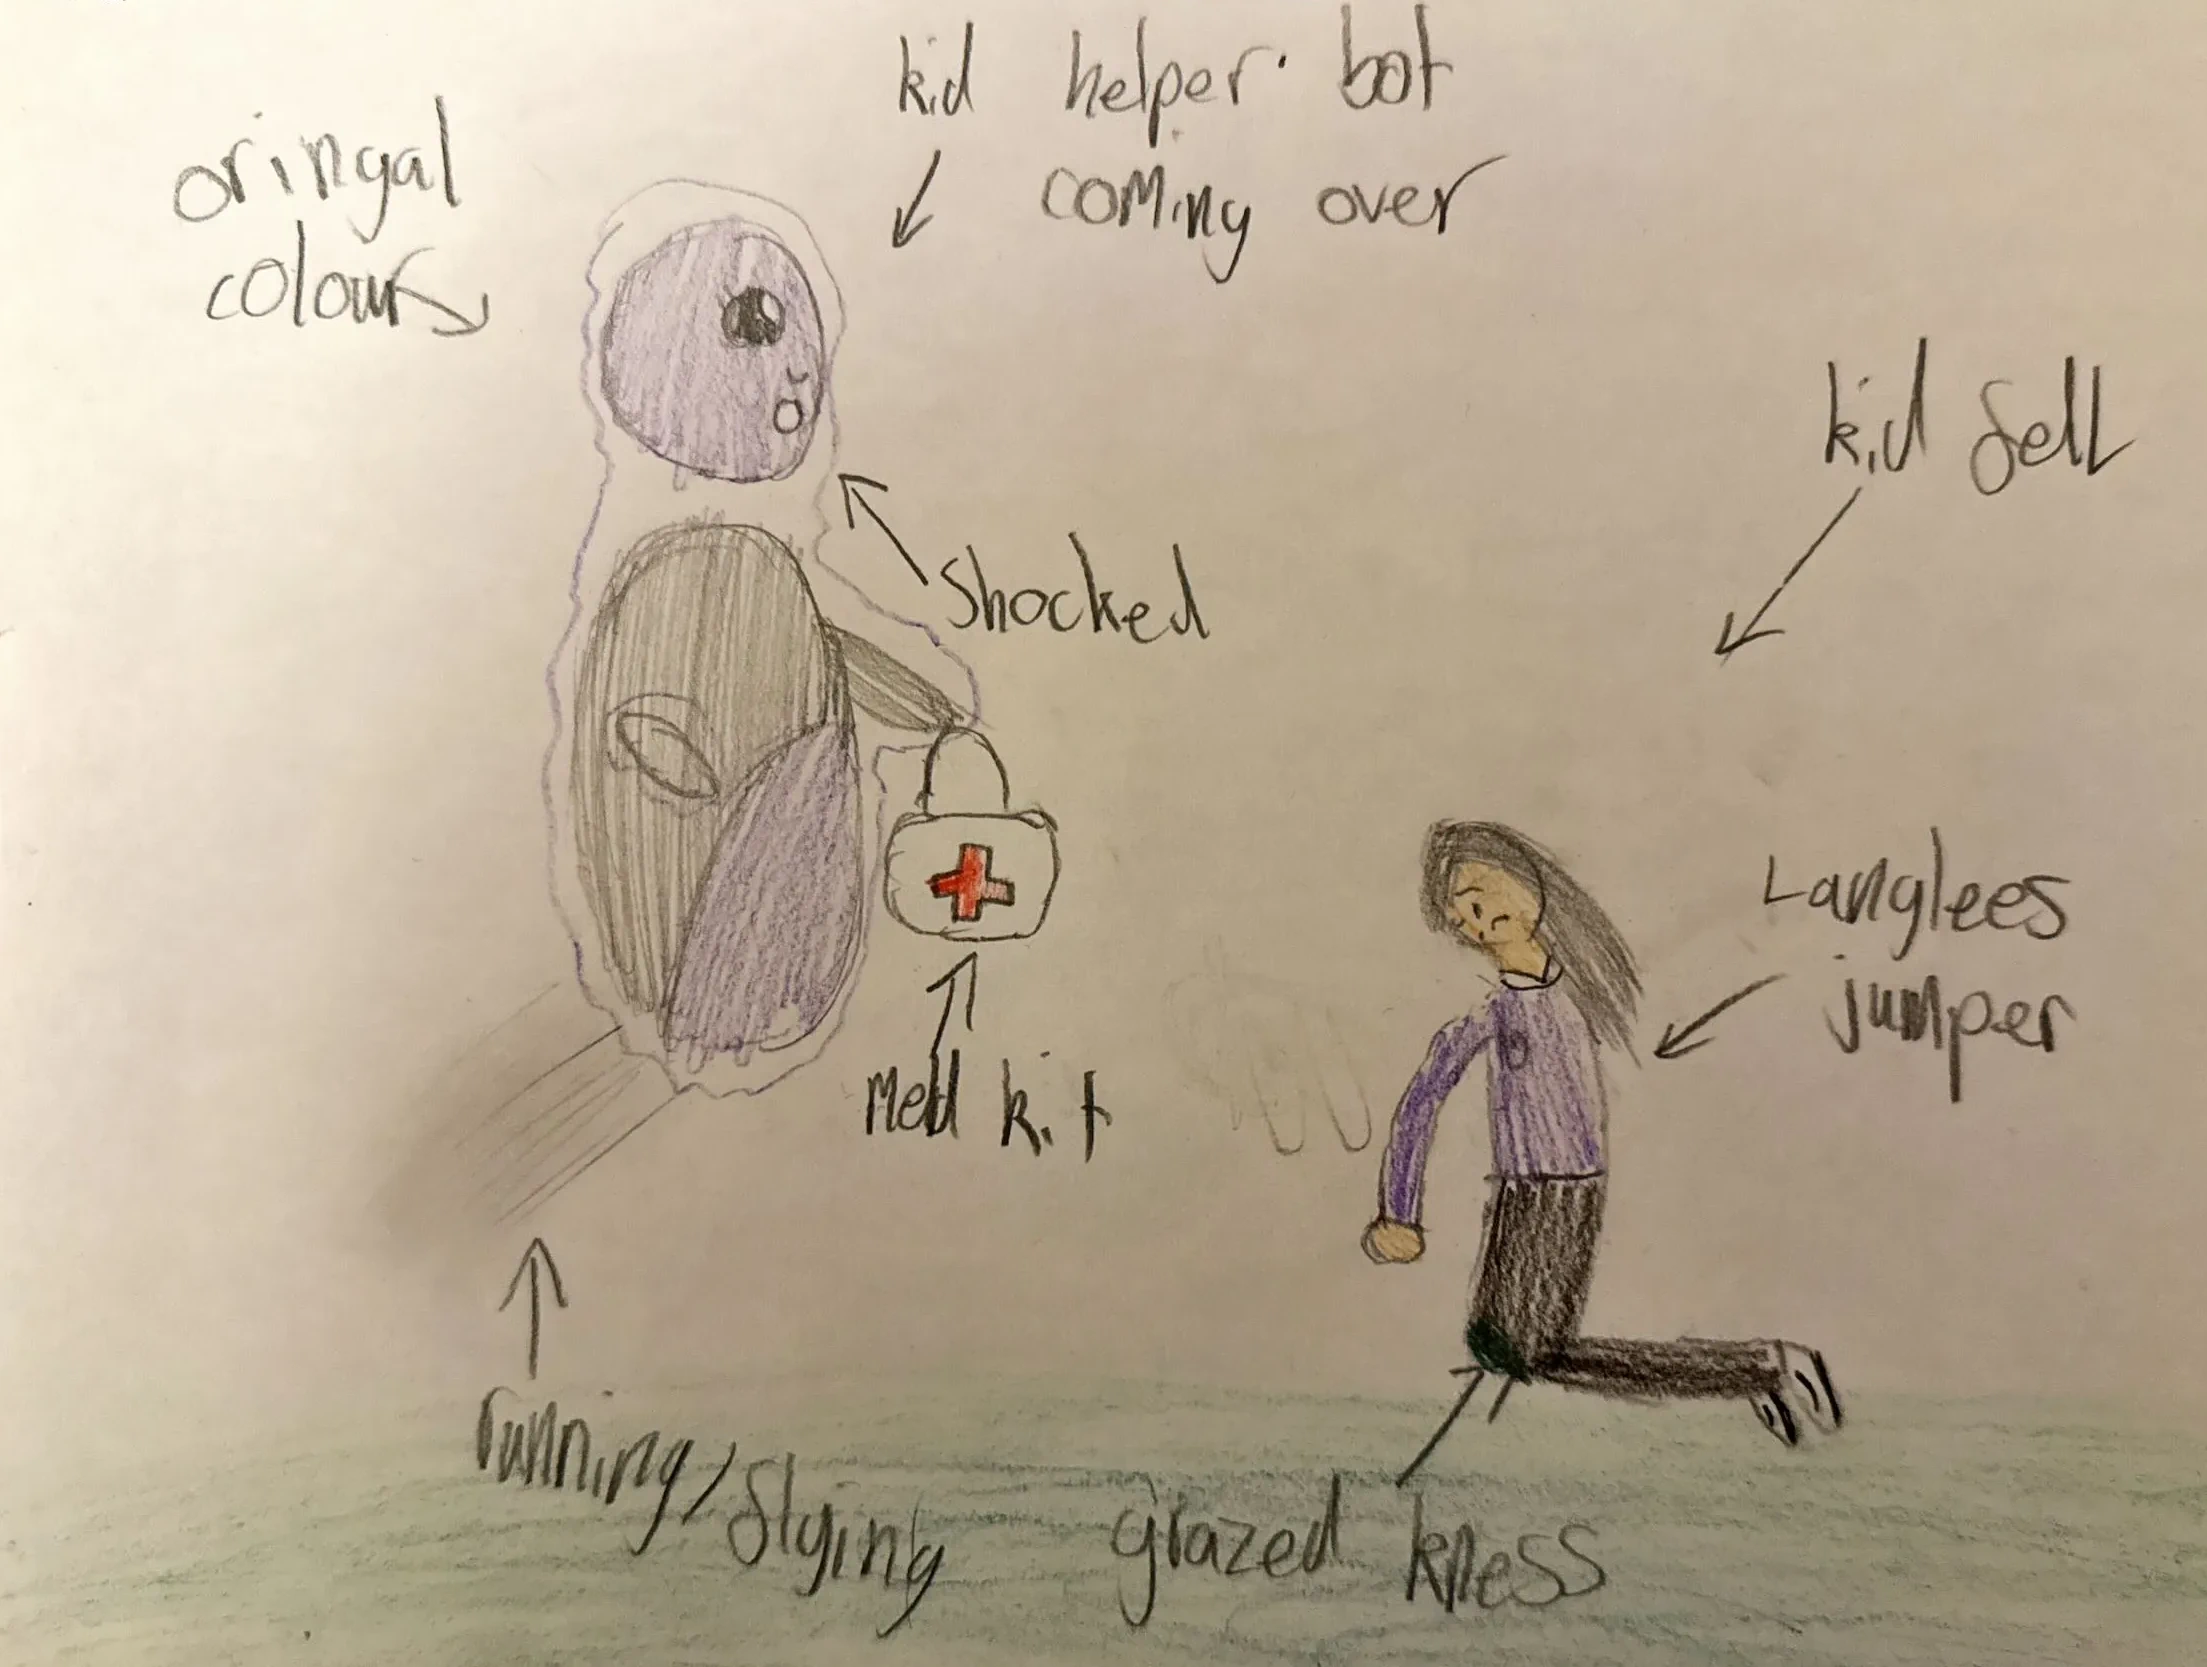 kid helper bot
coming over
oringal
colours
kid fell
Shocked
Langlees
jumper
Med kit
running/flying
grazed kness